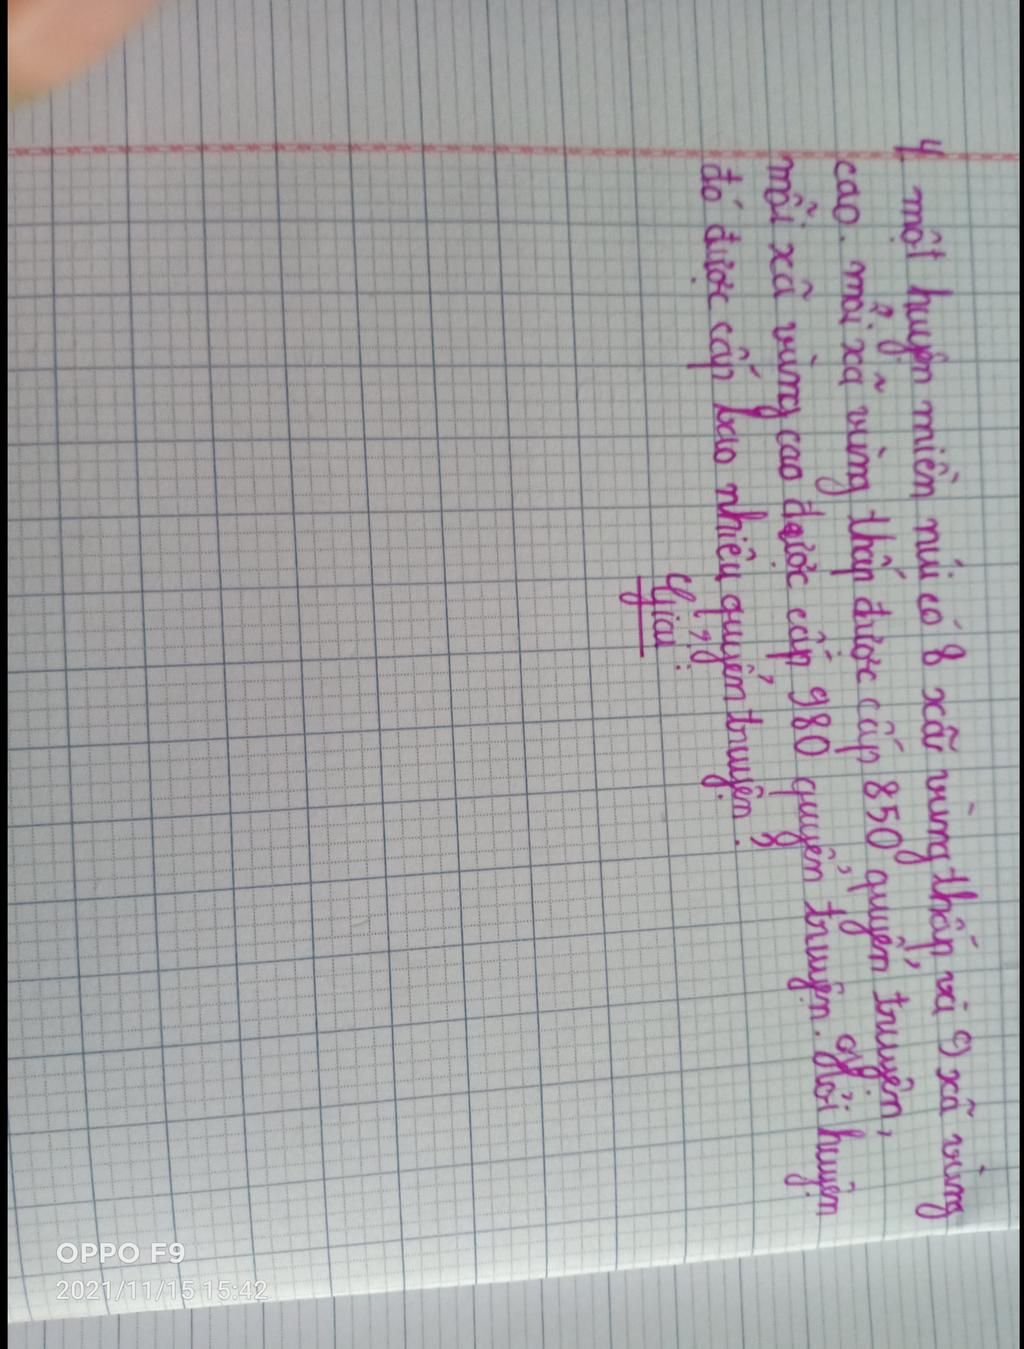 4, một huyện miền núi có 8 xã vùng thấp và 9 xã vùng
cao. mỗi xã vùng thấp được cấp 850 quyển truyện,
mỗi xã vùng cao được cấp 980 quyển truyện. Hỏi huyện
đó được cấp bao nhiêu quyển truyện?
Giải:
OPPO F9
2021/11/15 15:42